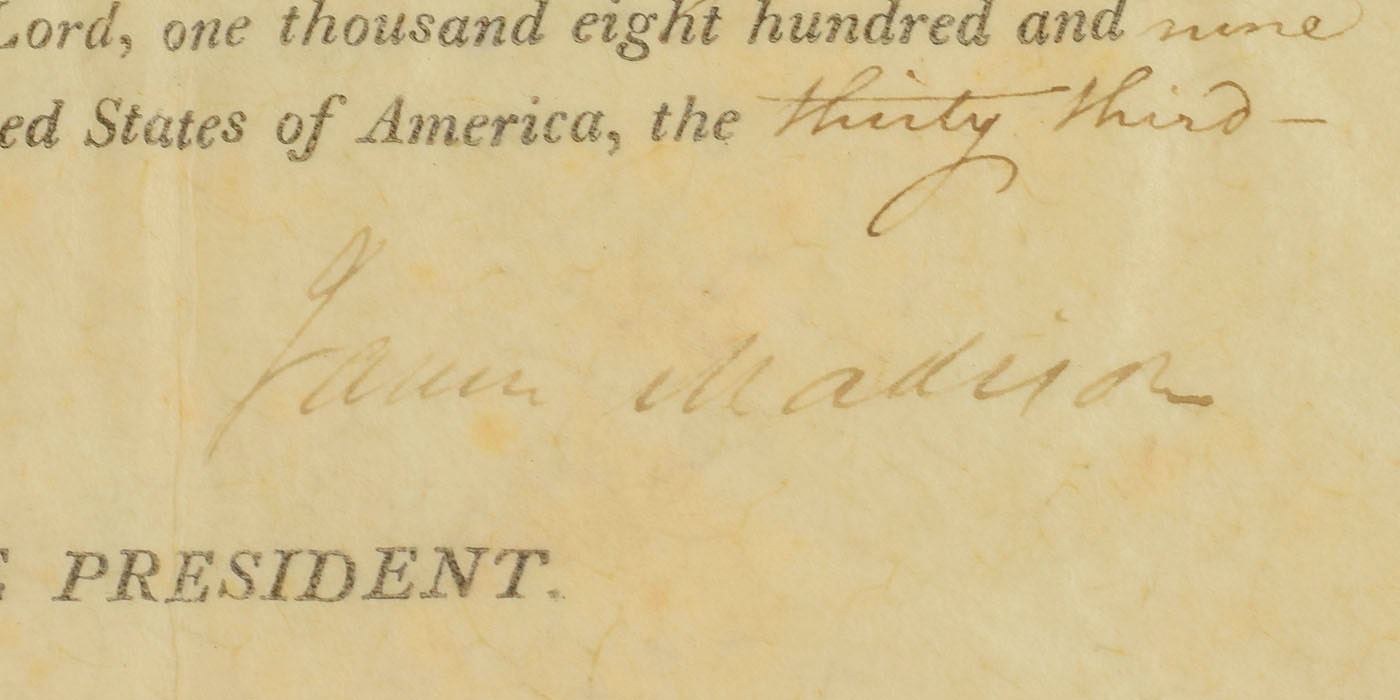 Lord, one thousand eight hundred and nine
ed States of America, the thirty third —
James Madison
PRESIDENT.